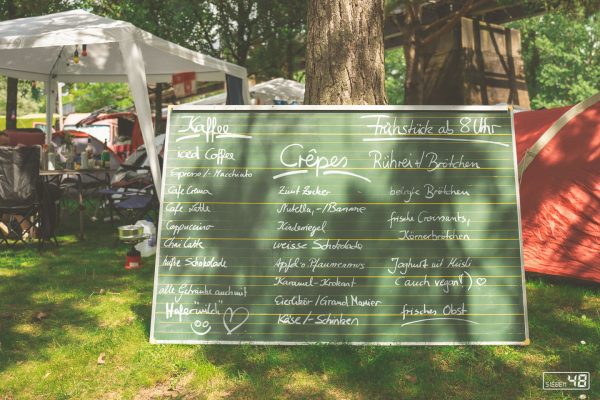 Kaffee
iced Coffee
Espresso/-Macchiato
Cafe Crema
Cafe Latte
Cappuccino
Chai Latte
heiße Schokolade
alle Getränke auch mit
Hafer"milch"
Crêpes
Zimt Zucker
Nutella,-/Banane
Kinderriegel
weisse Schokolade
Apfel o. Pflaumenmus
Karamel-Krokant
Eierlikör/Grand Manier
Käse/-Schinken
Frühstück ab 8 Uhr
Rührei+/Brötchen
belegte Brötchen
frische Croissants,
Körnerbrötchen
Joghurt mit Müsli
(auch vegan!)
frisches Obst
SIEBEN 48